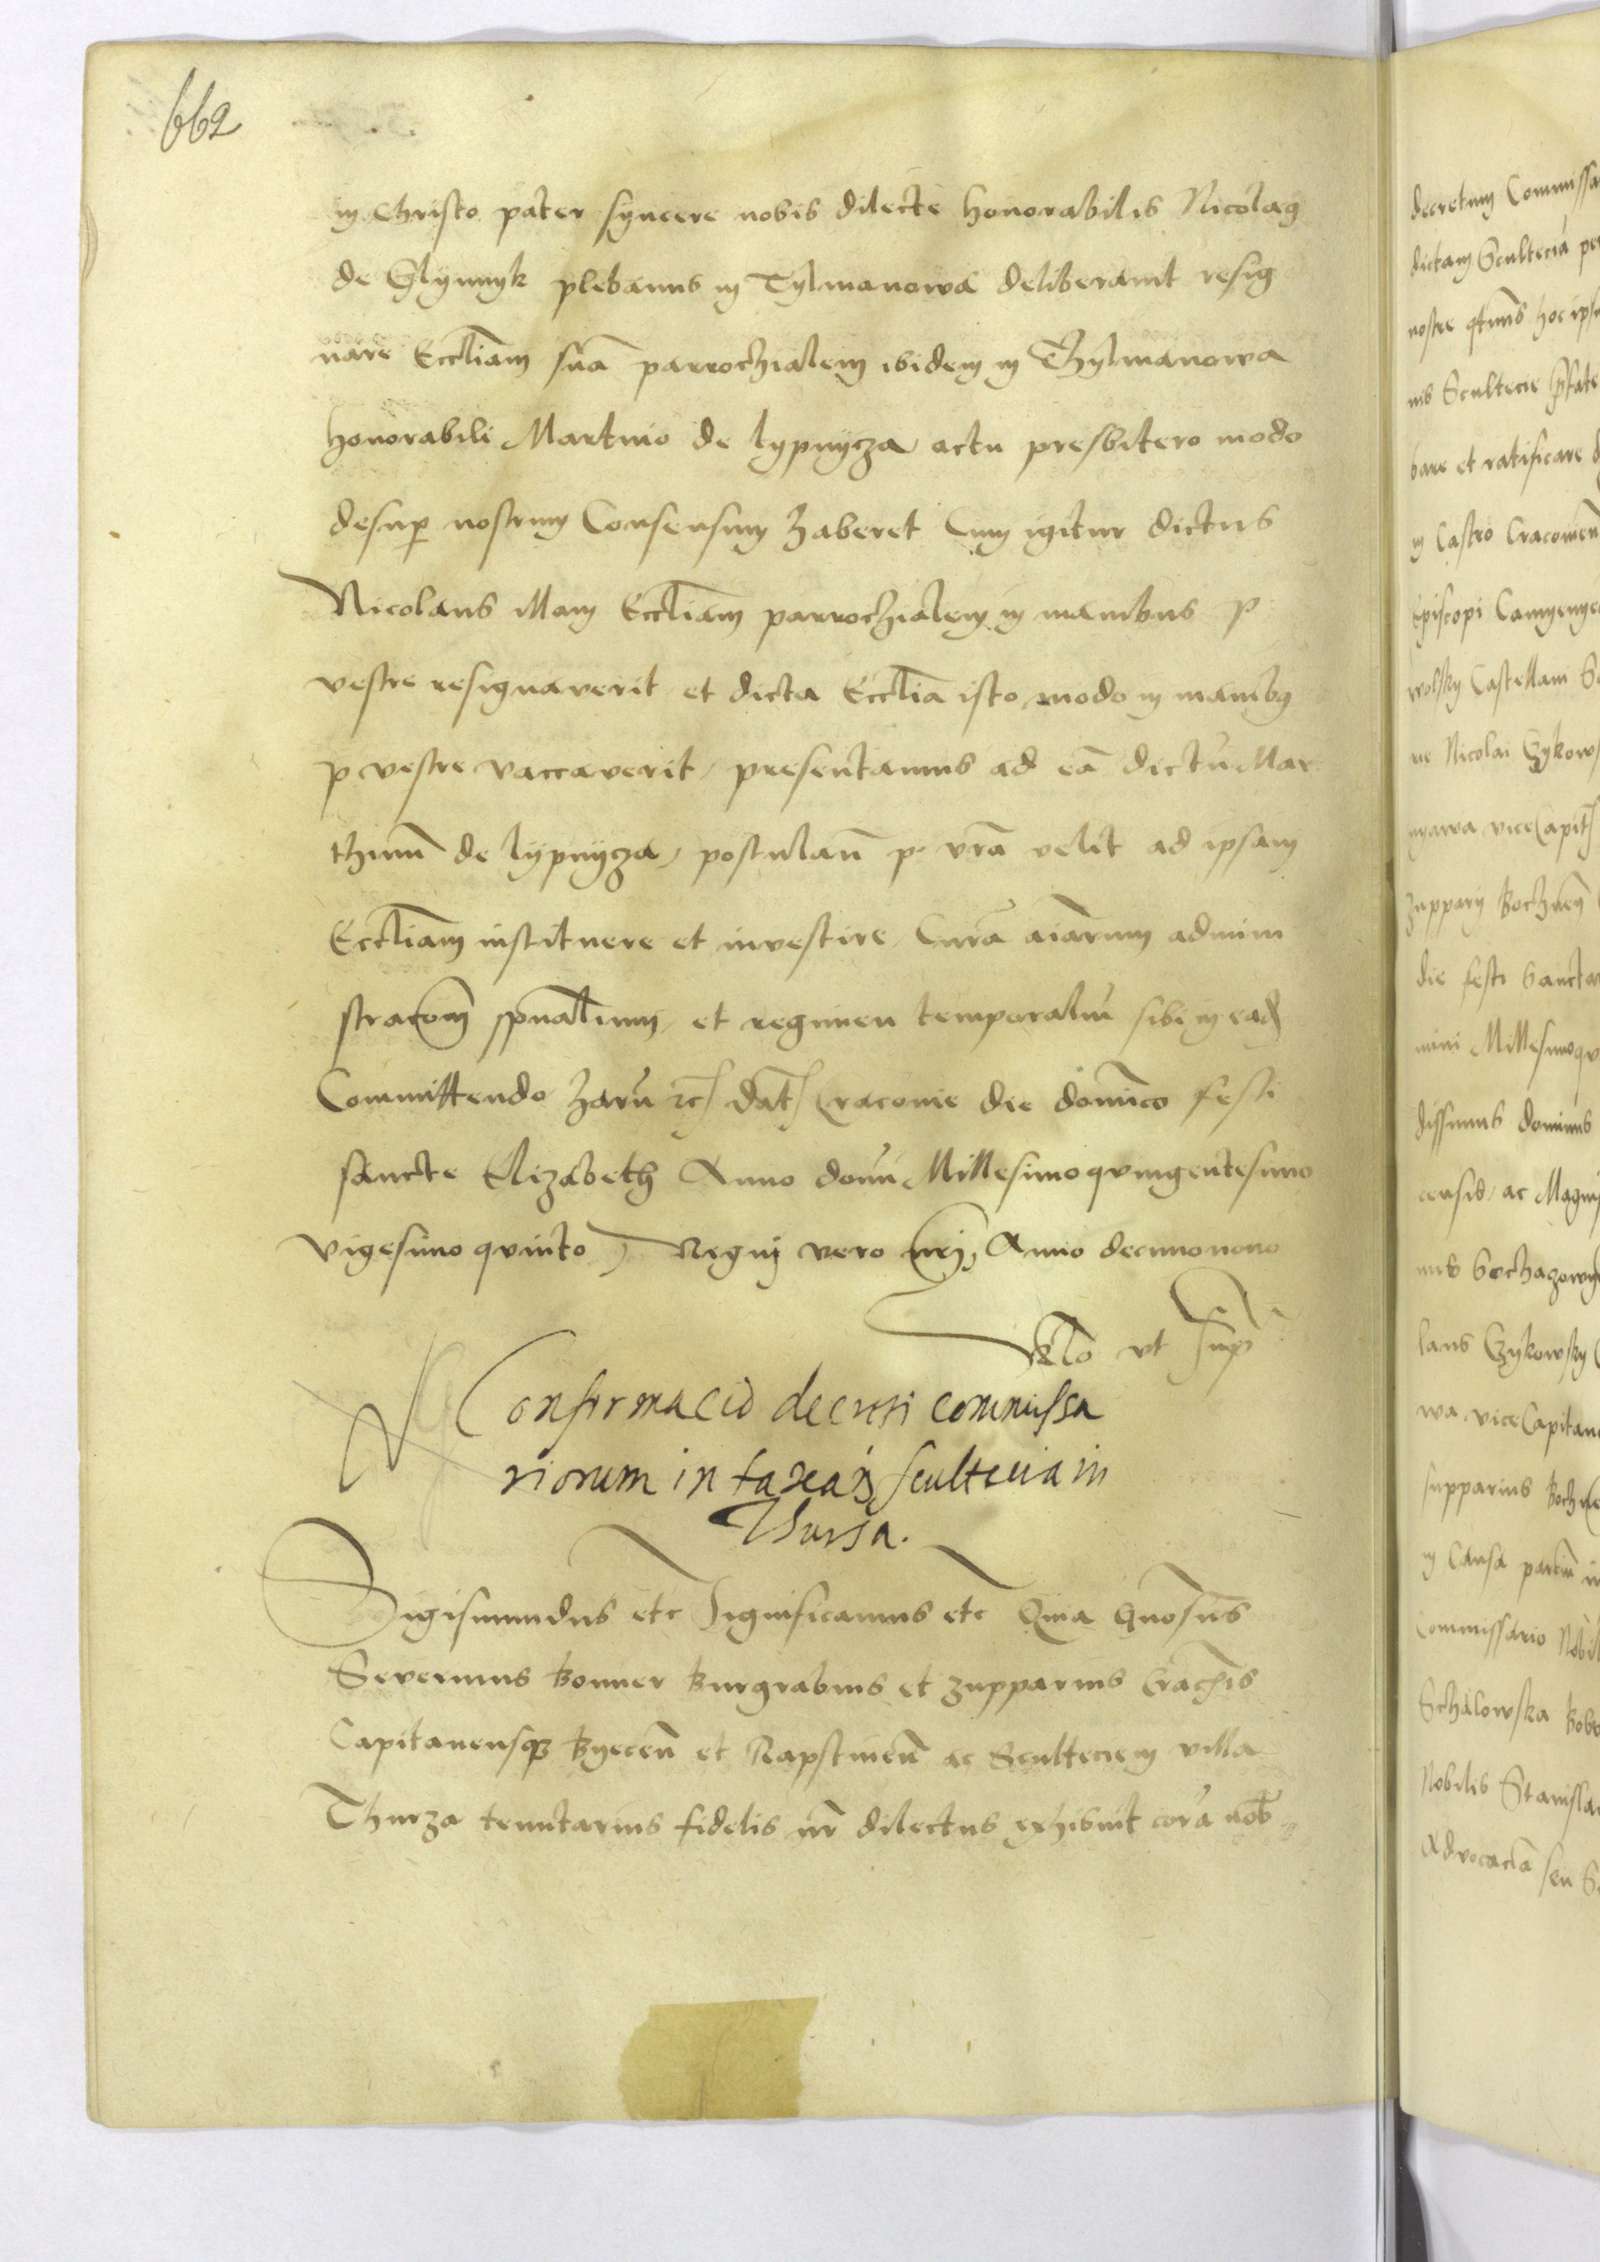 662
in Christo pater syncere nobis dilecte honorabilis Nicolaꝯ
de Glynnyk plebanus in Tylmanowa deliberauit resig
nare Eccliam suã parrochialem ibidem in Thylmanowa
honorabili Martino de lypnycza actu presbitero modo
desuꝑ nostrum Consensum haberet Cum igitur dictus
Nicolaus illam Eccliam parrochialem in manibus p
vestre resignaverit et dicta Ecclia isto modo in manibꝯ
p vestre vaccaverit, presentamus ad eã dictũ Mar
thinũ de lypnycza, postulañ p. vrã velit ad ipsam
Eccliam instituere et investire, Curã aiarum admini
stracõm spualium, et regimen temporaliũ sibi in eadꝫ
Committendo harũ etc dat Cracovie die dominico festi
sancte Elizabeth Anno domi Millesimoquingentesimo
vigesimo quinto, Regnj vero nrj, Anno decimonono
Relo vt supꝑ
Confirmacio decreti commissa
riorum in taxam sculteciam
Thursa.
Sigismundus etc Significamus etc Quia Gnosus
Severinus Bonner Burgrabius et zupparius Cracẽis
Capitaneusqꝫ Byecẽn et Rapstineñ ac Scultecie in villa
Thurza tenutarius fidelis nr dilectus exhibuit corã nob
decretum Commissa
dictam Scultecia per
nostre
nis Scultecie
bare et ratificare
in Castro Cracovien
Episcopi Camyenyec
wolsky Castellani
ne Nicolai Czykows
vice Capit
zupparij Bochnen
die festi Sancta
mini Millesimoqu
dissimus dominus
censis, ac Magni
nus Sochazow
laus Czykowsky
wa viceCapitan
supparius Bochne
in Causa
Commissario Nobil
Schalowska Bob
Nobilis Stanisla
Advocacia seu